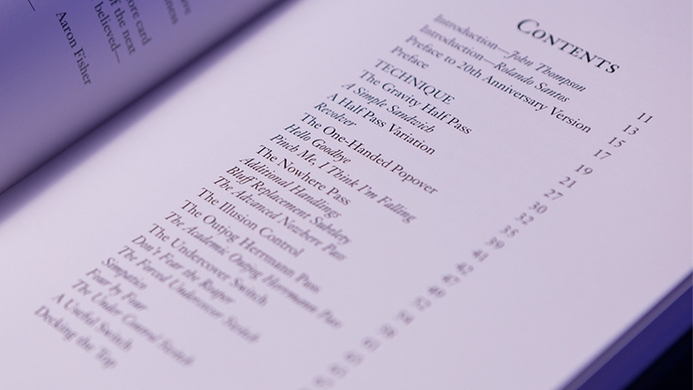 ore card
of the next
believed—
Aaron Fisher
CONTENTS
Introduction—John Thompson 11
Introduction—Rolando Santos 13
Preface to 20th Anniversary Version 15
Preface 17
TECHNIQUE
The Gravity Half Pass 19
A Simple Sandwich 21
A Half Pass Variation 27
Revolver 30
The One-Handed Popover 32
Hello Goodbye 35
Pinch Me, I Think I'm Falling 39
The Nowhere Pass
Additional Handlings
Bluff Replacement Subtlety
The Advanced Nowhere Pass
The Illusion Control
The Outjog Herrmann Pass
The Academic Outjog Herrmann Pass
The Undercover Switch
Don't Fear the Reaper
The Forced Undercover Switch
Simpatico
Four by Four
The Under Control Switch
A Useful Switch
Decking the Top